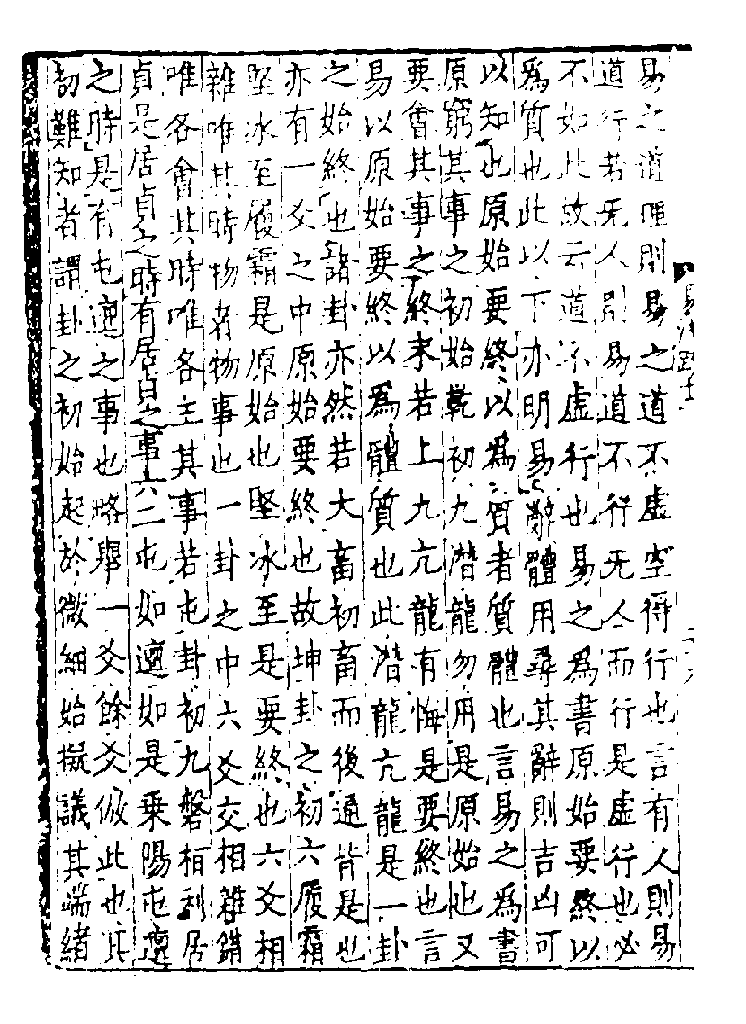 易之道理則易之道不虛空得行也言有人則易
道行若无人則易道不行无人而行是虛行也必
不如此故云道不虛行也易之為書原始要終以
為質也此以下亦明易辭體用尋其辭則吉凶可
以知也原始要終以為質者質體也言易之為書
原窮其事之初始乾初九潛龍勿用是原始也又
要會其事之終末若上九亢龍有悔是要終也言
易以原始要終以為體質也此潛龍亢龍是一卦
之始終也諸卦亦然若大畜初畜而後通皆是也
亦有一爻之中原始要終也故坤卦之初六履霜
堅冰至履霜是原始也堅冰至是要終也六爻相
雜唯其時物者物事也一卦之中六爻交相雜錯
唯各會其時唯各主其事若屯卦初九磐桓利居
貞是居貞之時有居貞之事六二屯如邅如是乗陽屯邅
之時是有屯邅之事也略舉一爻餘爻倣此也其
初難知者謂卦之初始起於微細始擬議其端緒